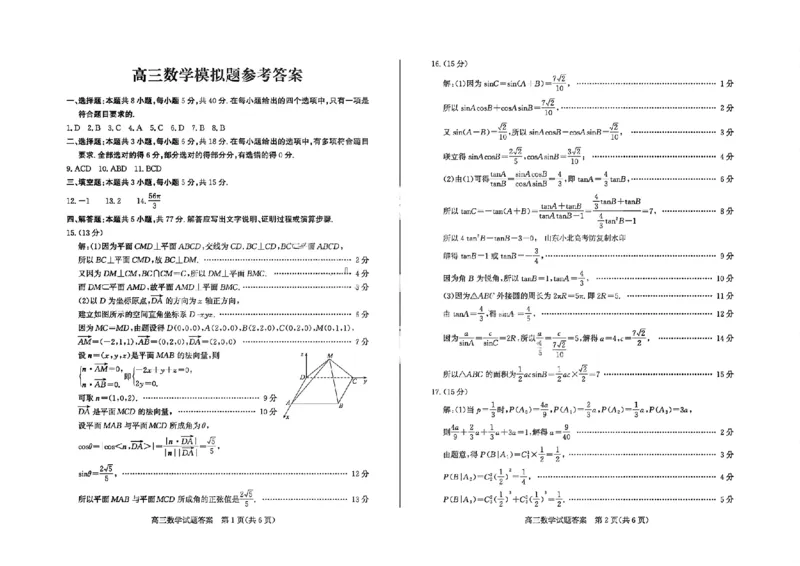 高三数学模拟题参考答案
一、选择题:本题共 8 小题,每小题 5 分,共 40 分. 在每小题给出的四个选项中,只有一项是
符合题目要求的.
1. D 2. B 3. C 4. A 5. C 6. D 7. B 8. B
二、选择题:本题共 3 小题,每小题 6 分,共 18 分. 在每小题给出的选项中,有多项符合题目
要求. 全部选对的得 6 分,部分选对的得部分分,有选错的得 0 分.
9. ACD 10. ABD 11. BCD
三、填空题:本题共 3 小题,每小题 5 分,共 15 分.
12. −1 13. 2 14. 56π/3
四、解答题:本题共 5 小题,共 77 分. 解答应写出文字说明、证明过程或演算步骤.
15. (13 分)
解:(1)因为平面 CMD⊥平面 ABCD,交线为 CD, BC⊥CD, BC⊂平面 ABCD,
所以 BC⊥平面 CMD,故 BC⊥DM. 2 分
又因为 DM⊥CM, BC∩CM=C,所以 DM⊥平面 BMC. 4 分
而 DM⊂平面 AMD,故平面 AMD⊥平面 BMC.
(2)以 D 为坐标原点, DA 的方向为 x 轴正方向,
建立如图所示的空间直角坐标系 D-xyz. 6 分
因为 MC=MD,由题设得 D(0,0,0), A(2,0,0), B(2,2,0), C(0,2,0), M(0,1,1),
AM=(−2,1,1), AB=(0,2,0), DA=(2,0,0) 7 分
设 n=(x,y,z)是平面 MAB 的法向量,则
{n·AM=0, n·AB=0. 即{−2x+y+z=0, 2y=0.
可取 n=(1,0,2). 9 分
DA 是平面 MCD 的法向量, 10 分
设平面 MAB 与平面 MCD 所成角为 θ,
cosθ=|cos<n,DA>|=|n·DA|/|n||DA|=√5/5,
sinθ=2√5/5, 12 分
所以平面 MAB 与平面 MCD 所成角的正弦值是 2√5/5. 13 分
z
M
D
C
y
A
B
x
高三数学试题答案 第 1 页(共 6 页)
16. (15 分)
解:(1)因为 sinC=sin(A+B)=7√2/10, 1 分
所以 sinAcosB+cosAsinB=7√2/10. 2 分
又 sin(A−B)=√2/10,所以 sinAcosB−cosAsinB=√2/10, 3 分
联立得 sinAcosB=2√2/5, cosAsinB=3√2/10; 4 分
(2)由(1)可得 tanA/tanB=sinAcosB/cosAsinB=4/3,即 tanA=4/3tanB, 6 分
所以 tanC=−tan(A+B)=(tanA+tanB)/(tanAtanB−1)=(4/3tanB+tanB)/(4/3tan²B−1)=7, 8 分
所以 4tan²B−tanB−3=0, 山东小北高考仿复制水印
解得 tanB=1 或 tanB=−3/4, 9 分
因为角 B 为锐角,所以 tanB=1, tanA=4/3. 10 分
(3)因为△ABC 外接圆的周长为 2πR=5π,即 2R=5. 11 分
由 tanA=4/3,得 sinA=4/5. 12 分
因为 a/sinA=c/sinC=2R,所以 a/(4/5)=c/(7√2/10)=5,解得 a=4, c=7√2/2, 14 分
所以△ABC 的面积为 1/2acsinB=1/2ac×√2/2=7 15 分
17. (15 分)
解:(1)当 p=1/3 时, P(A₀)=4a/9, P(A₁)=2/3a, P(A₂)=1/3a, P(A₃)=3a,
则 4a/9+2/3a+1/3a+3a=1,解得 a=9/40 2 分
由题意,得 P(B|A₁)=C₂¹×1/2=1/2, 3 分
P(B|A₂)=C₂²(1/2)²=1/4, 4 分
5 分
高三数学试题答案 第 2 页(共 6 页)